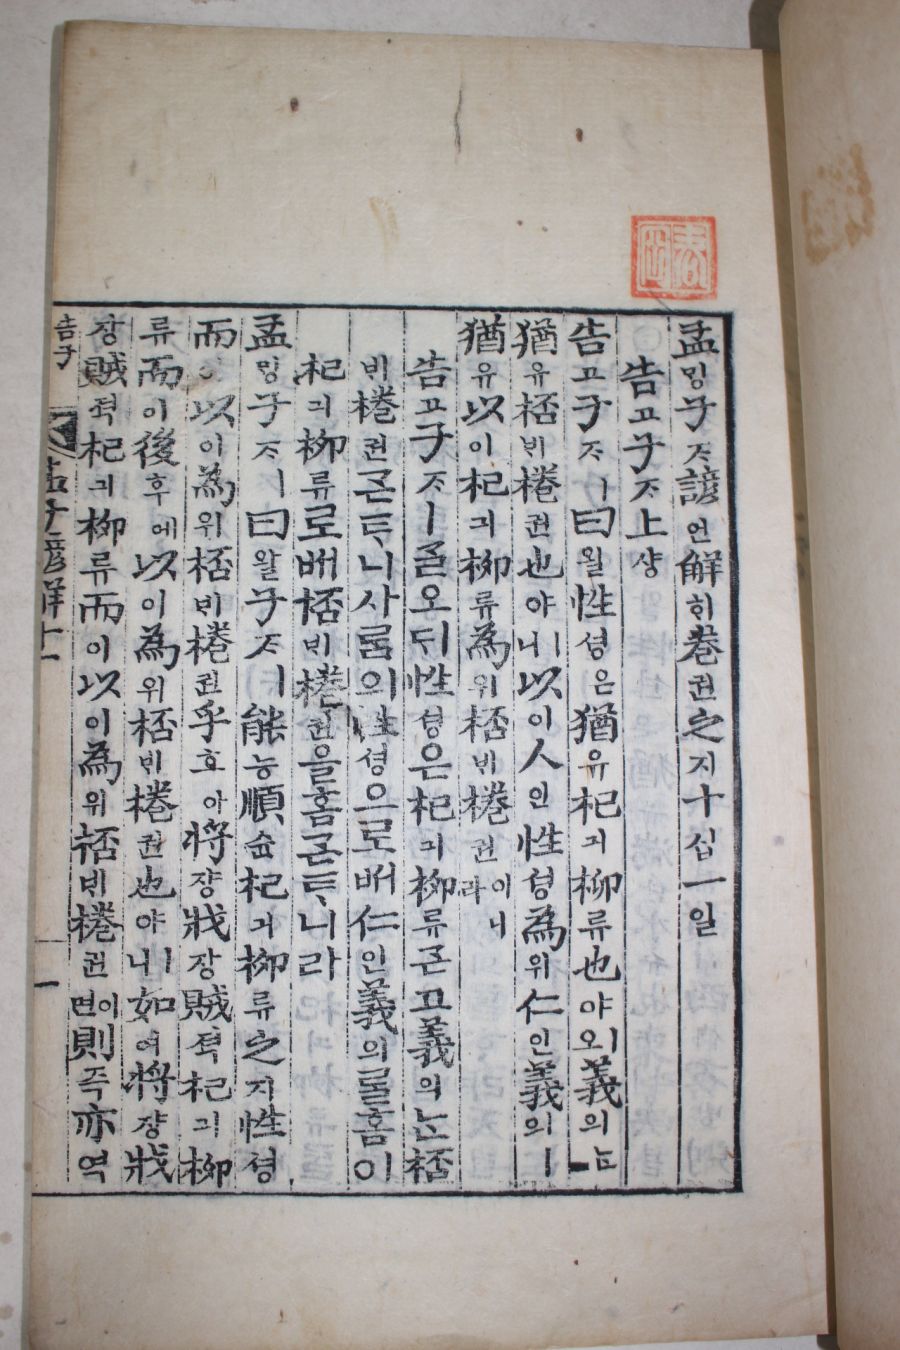 孟밍子ᄌᆞ諺언解ᄒᆡ巻권之지十십一일
告고子ᄌᆞ上샹
告고子ᄌᆞㅣ曰왈性셩은猶유杞긔柳류也야오義의ᄂᆞᆫ
猶유桮ᄇᆡ棬권也야ㅣ니以이人인性셩為위仁인義의ㅣ
猶유以이杞긔柳류為위桮ᄇᆡ棬권이니라
告고子ᄌᆞㅣᄀᆞᆯ오ᄃᆡ性셩은杞긔柳류ᄀᆞᆮ고義의ᄂᆞᆫ桮
ᄇᆡ棬권ᄀᆞᆮᄐᆞ니사ᄅᆞᆷ의性셩으로ᄡᅥ仁인義의ᄅᆞᆯ홈이
杞긔柳류로ᄡᅥ桮ᄇᆡ棬권을홈ᄀᆞᆮᄐᆞ니라
孟밍子ᄌᆞㅣ曰왈子ᄌᆞㅣ能능順슌杞긔柳류之지性셩
而이以이為위桮ᄇᆡ棬권乎호아將쟝戕장賊적杞긔柳
류而이後후에以이為위桮ᄇᆡ棬권也야ㅣ니如여將쟝戕
장賊적杞긔柳류而이以이為위桮ᄇᆡ棬권이면則즉亦역
告子
孟子諺解十一
一